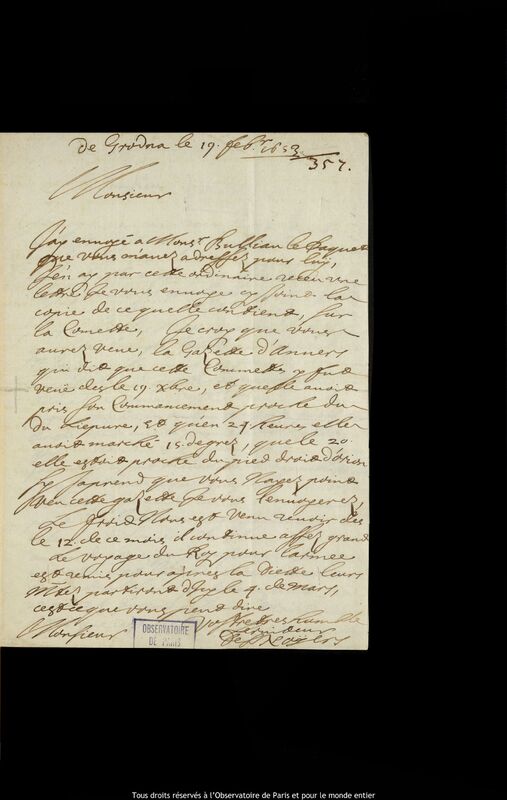 De Grodna le 19. feb.r 1653
357.
Monsieur
J'ay envoyé a Mons.r Bullian le Paquet
que vous mavez adressez pour luy,
J'en ay par cette ordinaire receu une
lettre Je vous envoye cy joint la
copie de ce quelle contient, sur
la Comette, Je croy que vous
aurez veue, la Gazette d'Anvers
qui dit que cette Commette y fut
veue des le 19. xbre, et quelle avoit
pris son Commancement proche du
du Liepure, Et quen 24 heures elle
avoit marché 15. degrez, que le 20.
elle estoit proche du pied droit d'orion
Sy japrend que vous Nayez point
veu cette gazette Je vous lenvoyerez,
Le froid Nous est venu revoir des
le 12. de ce mois il continue assez grand
Le voyage du Roy pour larmee
est remis pour apres la Diette leurs
Mtez partiront dIcy le 4. de mars,
cest ce que vous peut dire
Monsieur
Vostre tres humble
serviteur
Des Noyers
OBSERVATOIRE
DE PARIS
Tous droits réservés à l'Observatoire de Paris et pour le monde entier